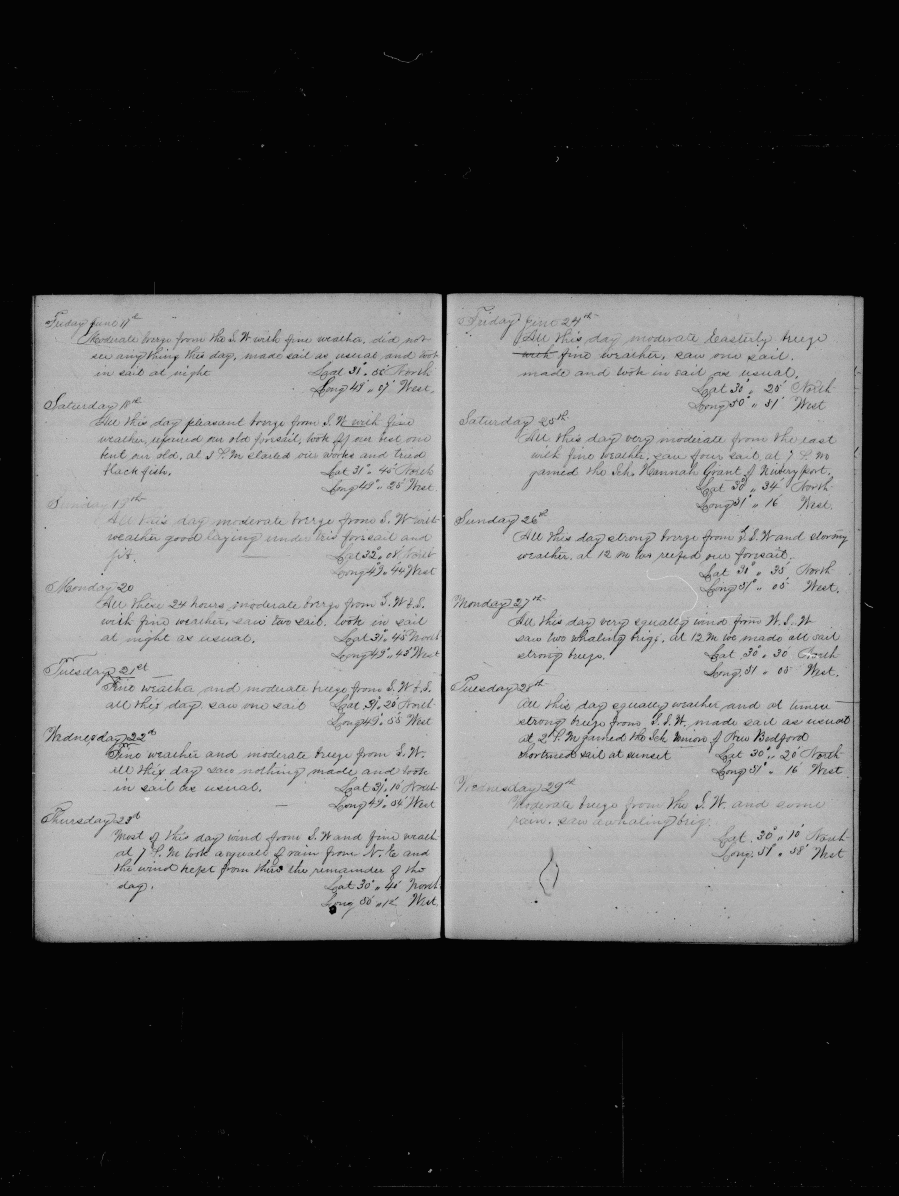 Friday June 17th
Moderate breeze from the S. W. with fine weather, did not
see any thing this day, made sail as usual and took
in sail at night Lat 31° " 55' North
Long 49° " 07' West.
Saturday 18th
All this day pleasant breeze from S. W. with fine
weather, our old foresail, took off our best one
bent our old. at 3 P. M. started our works and tried
black fish. Lat 31° " 45' North
Long 49° " 25' West.
Sunday 19th
All this day moderate breeze from S. W. with
weather good laying under his foresail and
jib. Lat 32° " 08' North
Long 49° " 44' West
Monday 20
All these 24 hours moderate breeze from S. W. & S.
with fine weather, saw two sail. took in sail
at night as usual. Lat 31° " 45' North
Long 49° " 43' West
Tuesday 21st
Fine weather and moderate breeze from S. W. & S.
all this day. saw one sail Lat 31° " 20' North
Long 49° " 55' West
Wednesday 22d
Fine weather and moderate breeze from S. W.
all this day saw nothing made and took
in sail as usual. Lat 31° " 10' North
Long 49° " 54' West
Thursday 23d
Most of this day wind from S. W. and fine weath
at 7 P. M. took a squall of rain from N. E. and
the wind kept from there the remainder of the
day. Lat 30° " 40' North
Long 50° " 12' West.
Friday June 24th
All this day moderate Easterly breeze
with fine weather, saw one sail.
made and took in sail as usual.
Lat 30° " 25' North
Long 50° " 51' West
Saturday 25th
All this day very moderate from the east
with fine weather, saw four sail at 7 P. M.
gamed the Sch. Hannah Grant of Newburyport.
Lat 30° " 34' North
Long 51° " 16' West.
Sunday 26th
All this day strong breeze from S. S. W and stormy
weather. at 12 M we reefed our foresail.
Lat 30° " 35' North
Long 51° " 05' West.
Monday 27th
All this day very squally wind from W. S. W
saw two whaling brigs. at 12 M we made all sail
strong breeze. Lat 30° " 30' North
Long 51 " 05' West.
Tuesday 28th
All this day squally weather and at times
strong breeze from S. S. W, made sail as usual
at 2 P. M gamed the Sch Union of New Bedford
shortened sail at sunset Lat 30° " 20' North
Long 51° " 16' West
Wednesday 29th
Moderate breeze from the S. W. and some
rain. saw a whaling brig.
Lat. 30° " 10' North
Long. 51° " 58' West